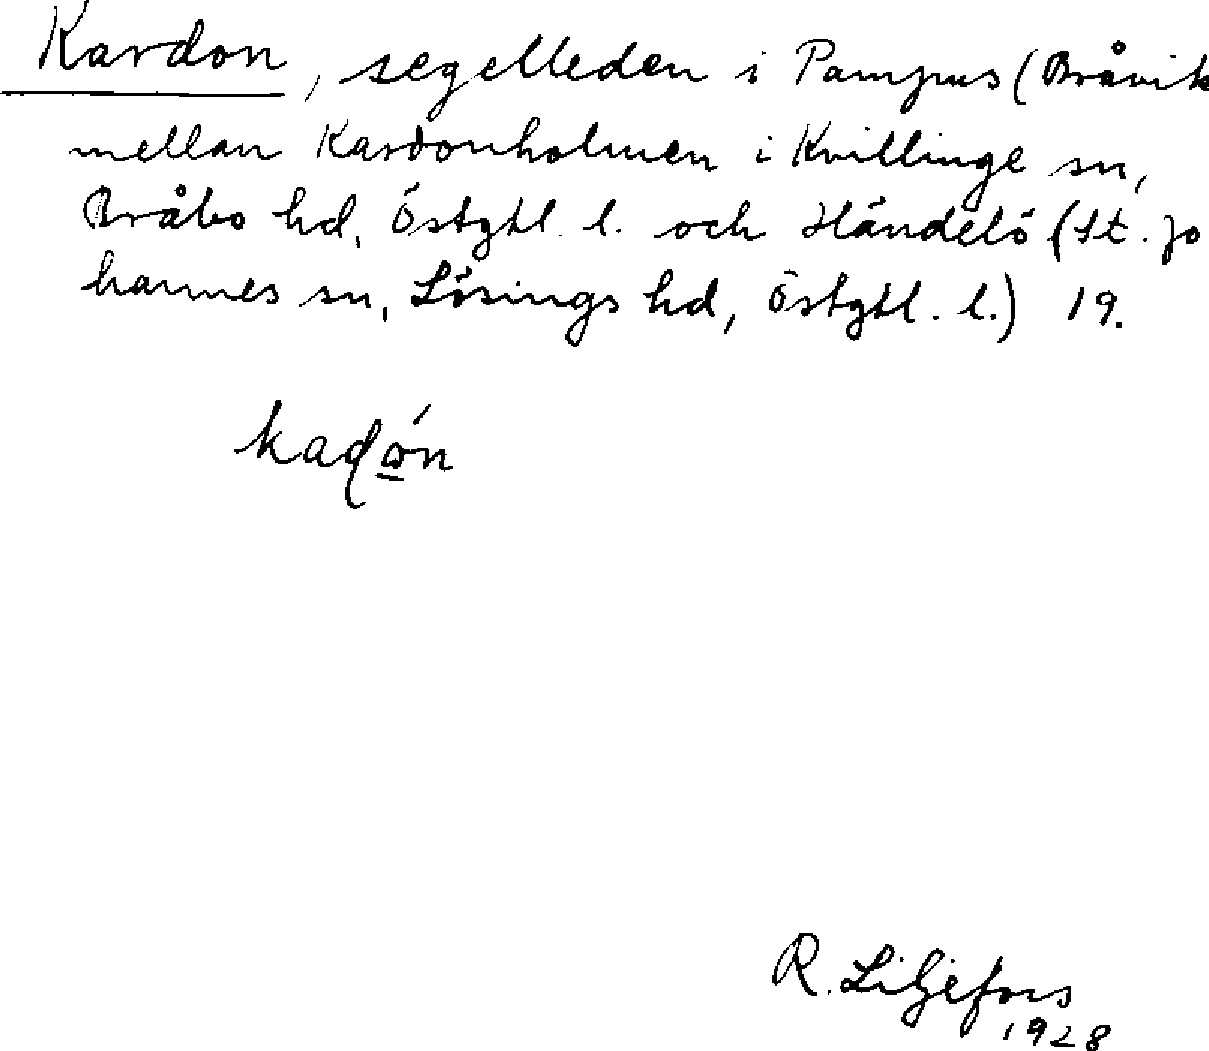 Kardon, segelleden i Pampus (Bråvik
mellan Kardonholmen i Kvillinge sn,
Bråbo hd, Östgtl. l. och Händelö (St. Jo
hannes sn, Lösings hd, Östgtl. l.) 19.
kadón
R. Liljefors
1928